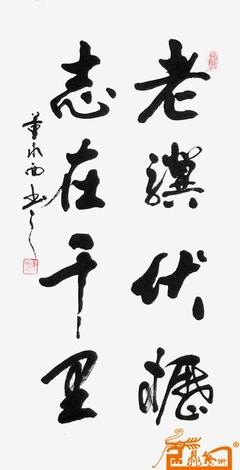 老驥伏櫪
志在千里
董永西书